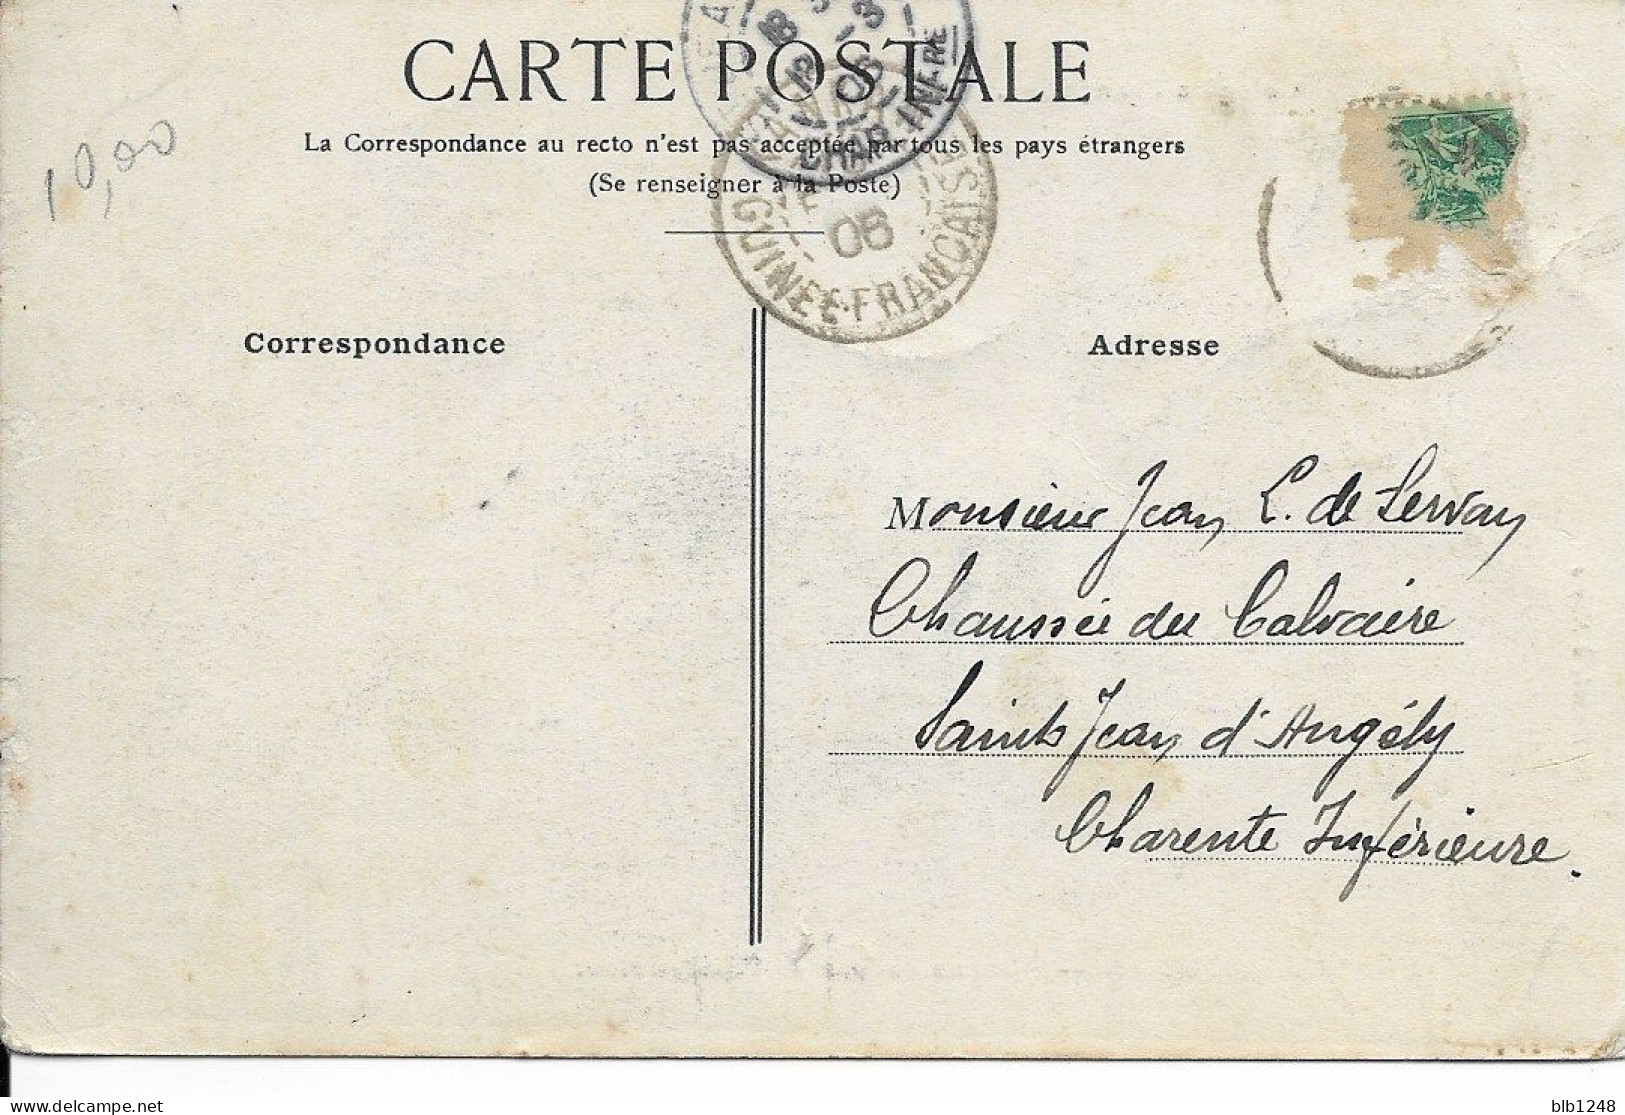 CARTE POSTALE
La Correspondance au recto n'est pas acceptée par tous les pays étrangers
(Se renseigner à la Poste)
10,00
GUINÉE-FRANÇAISE
06
CHAR. INFRE
Correspondance
Adresse
Monsieur Jean L. de Servan
Chaussée du Calvaire
Saint Jean d'Angély
Charente Inférieure.
blb1248